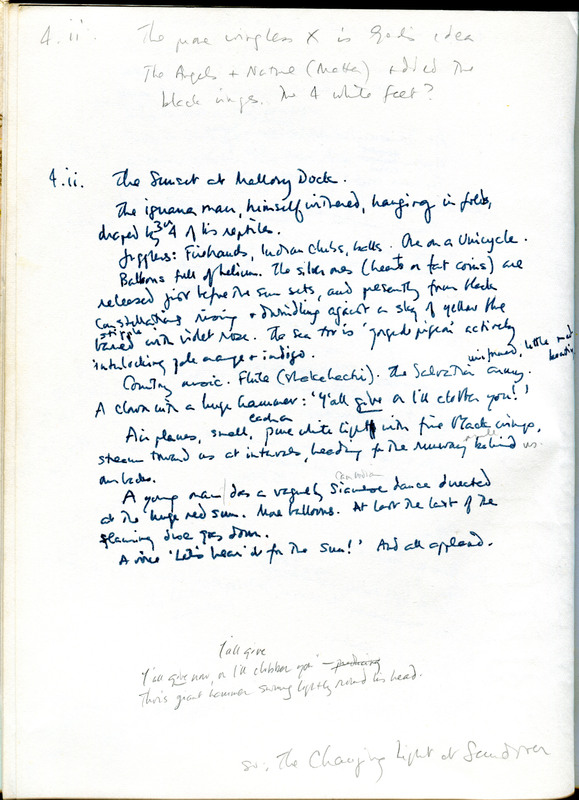 4.ii. The pure wingless X is God's idea
The Angels + Nature (Matter) added the
black wings. The 4 white feet?
4.ii. The Sunset at Mallory Dock.
The iguana man, himself withered, hanging in folds,
draped by 3 or 4 of his reptiles.
Jugglers: Firebrands, Indian clubs, balls. One on a Unicycle.
Balloons full of helium. The silver ones (hearts or fat coins) are
released just before the sun sets, and presently form black
constellations rising + dwindling against a sky of yellow
stippled with violet rose. The sea is 'gorged pigeon' actively
interlocking pale orange + indigo.
uniformed, little
Country music. Flute (Shakuhachi). The Salvation Army.
A clown with a huge hammer: 'Y'all give or I'll clobber you!'
each a
Air planes, small, pure white light with fine black wings,
stream toward us at intervals, heading for the runway behind us.
our backs.
Cambodian
A young man does a vaguely Siamese dance directed
at the huge red sun. More balloons. At last the last of the
flaming disc goes down.
A voice 'Let's hear it for the sun!' And all applaud.
Y'all give
Y'all give now, or I'll clobber you'
Thor's giant hammer swung lightly round his head.
so: The Changing Light at Sandover